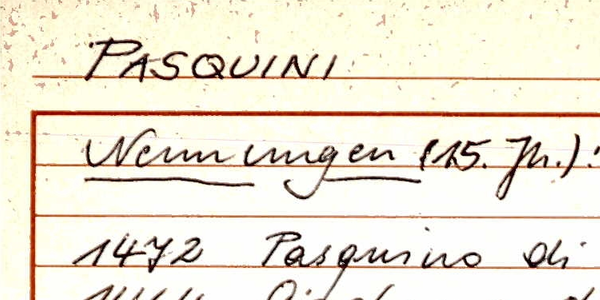 PASQUINI
Nennungen (15. Jh.):
1472 Pasquino di